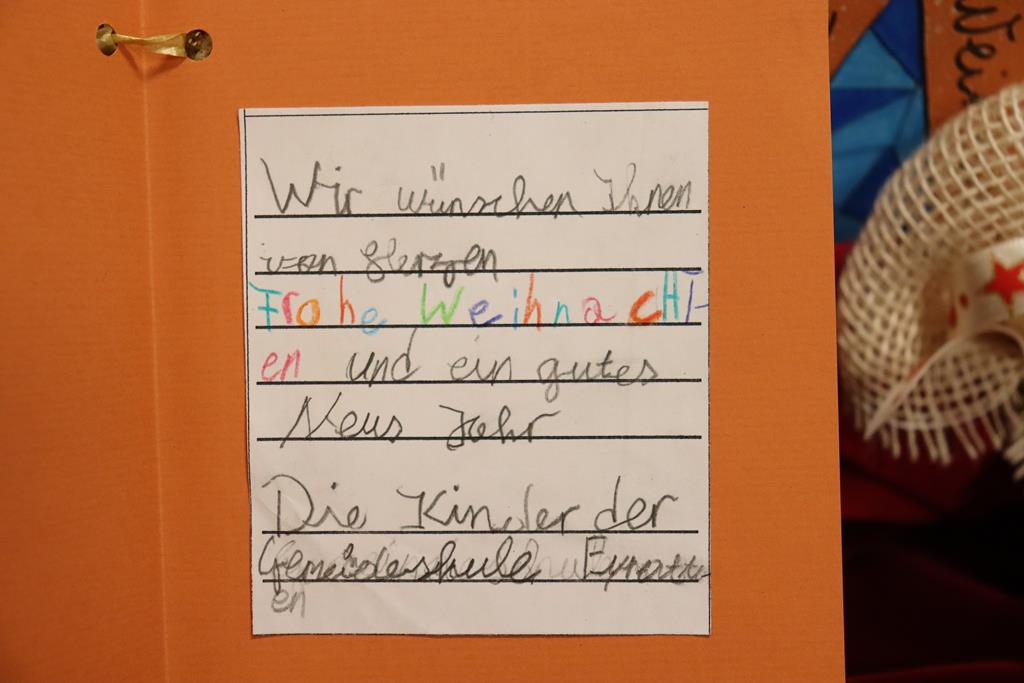 Wir wünschen Ihnen
von Herzen
Frohe WeihnacHT-
en und ein gutes
Neus Jahr
Die Kinder der
Gemeideshule
en
Wei